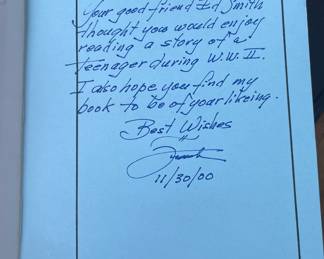 Your good friend Ed Smith
thought you would enjoy
reading a story of a
teenager during W.W. II.
I also hope you find my
book to be of your likeing.
Best Wishes
11/30/00